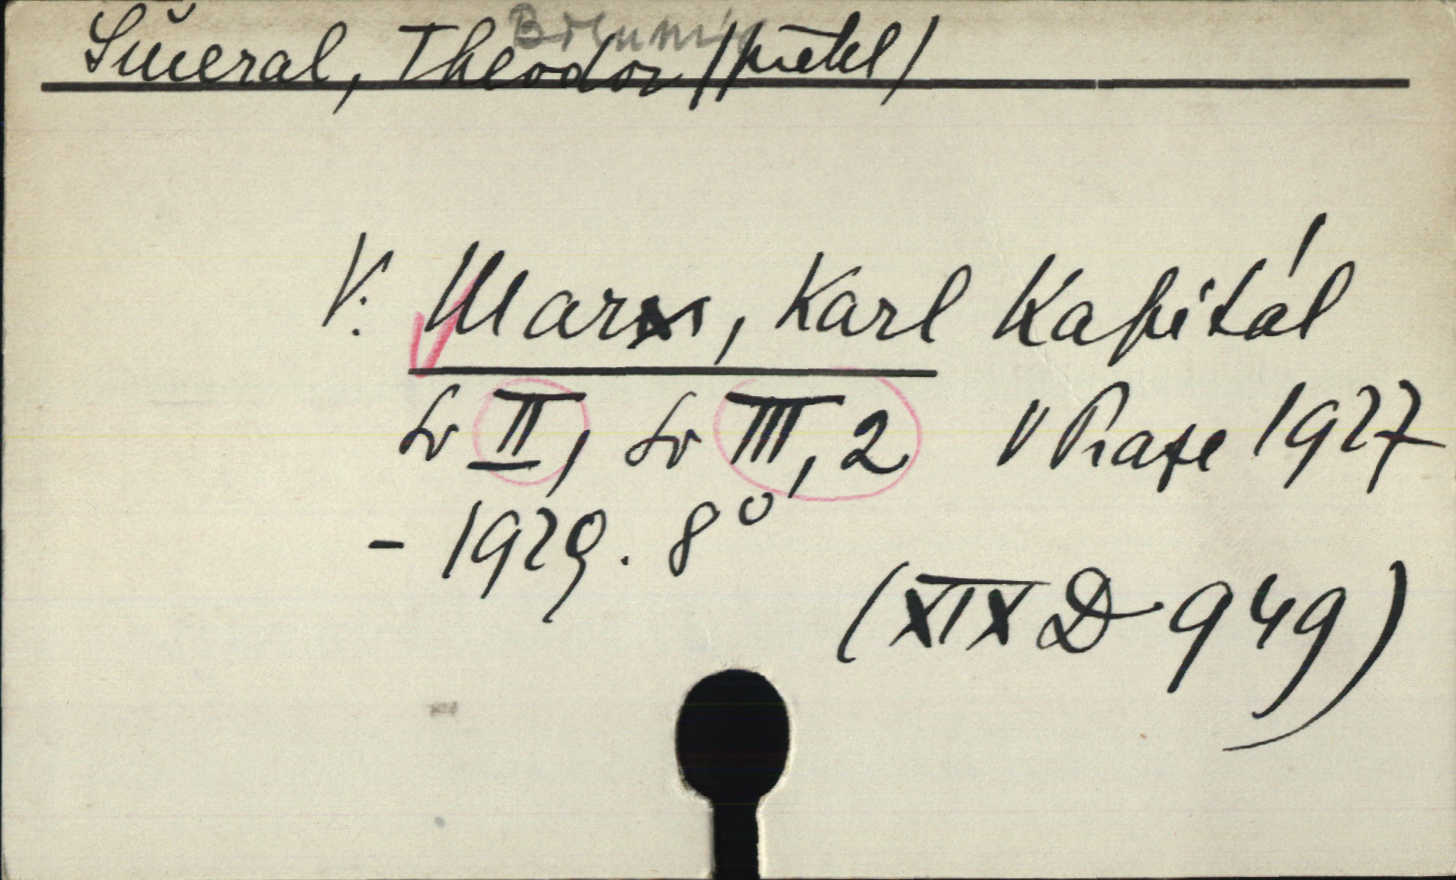 Šmeral, Theodor /překl/
V. Marx, Karl Kapitál
Sv II, Sv III, 2 V Praze 1927
- 1929. 8°
(XIX D 949)